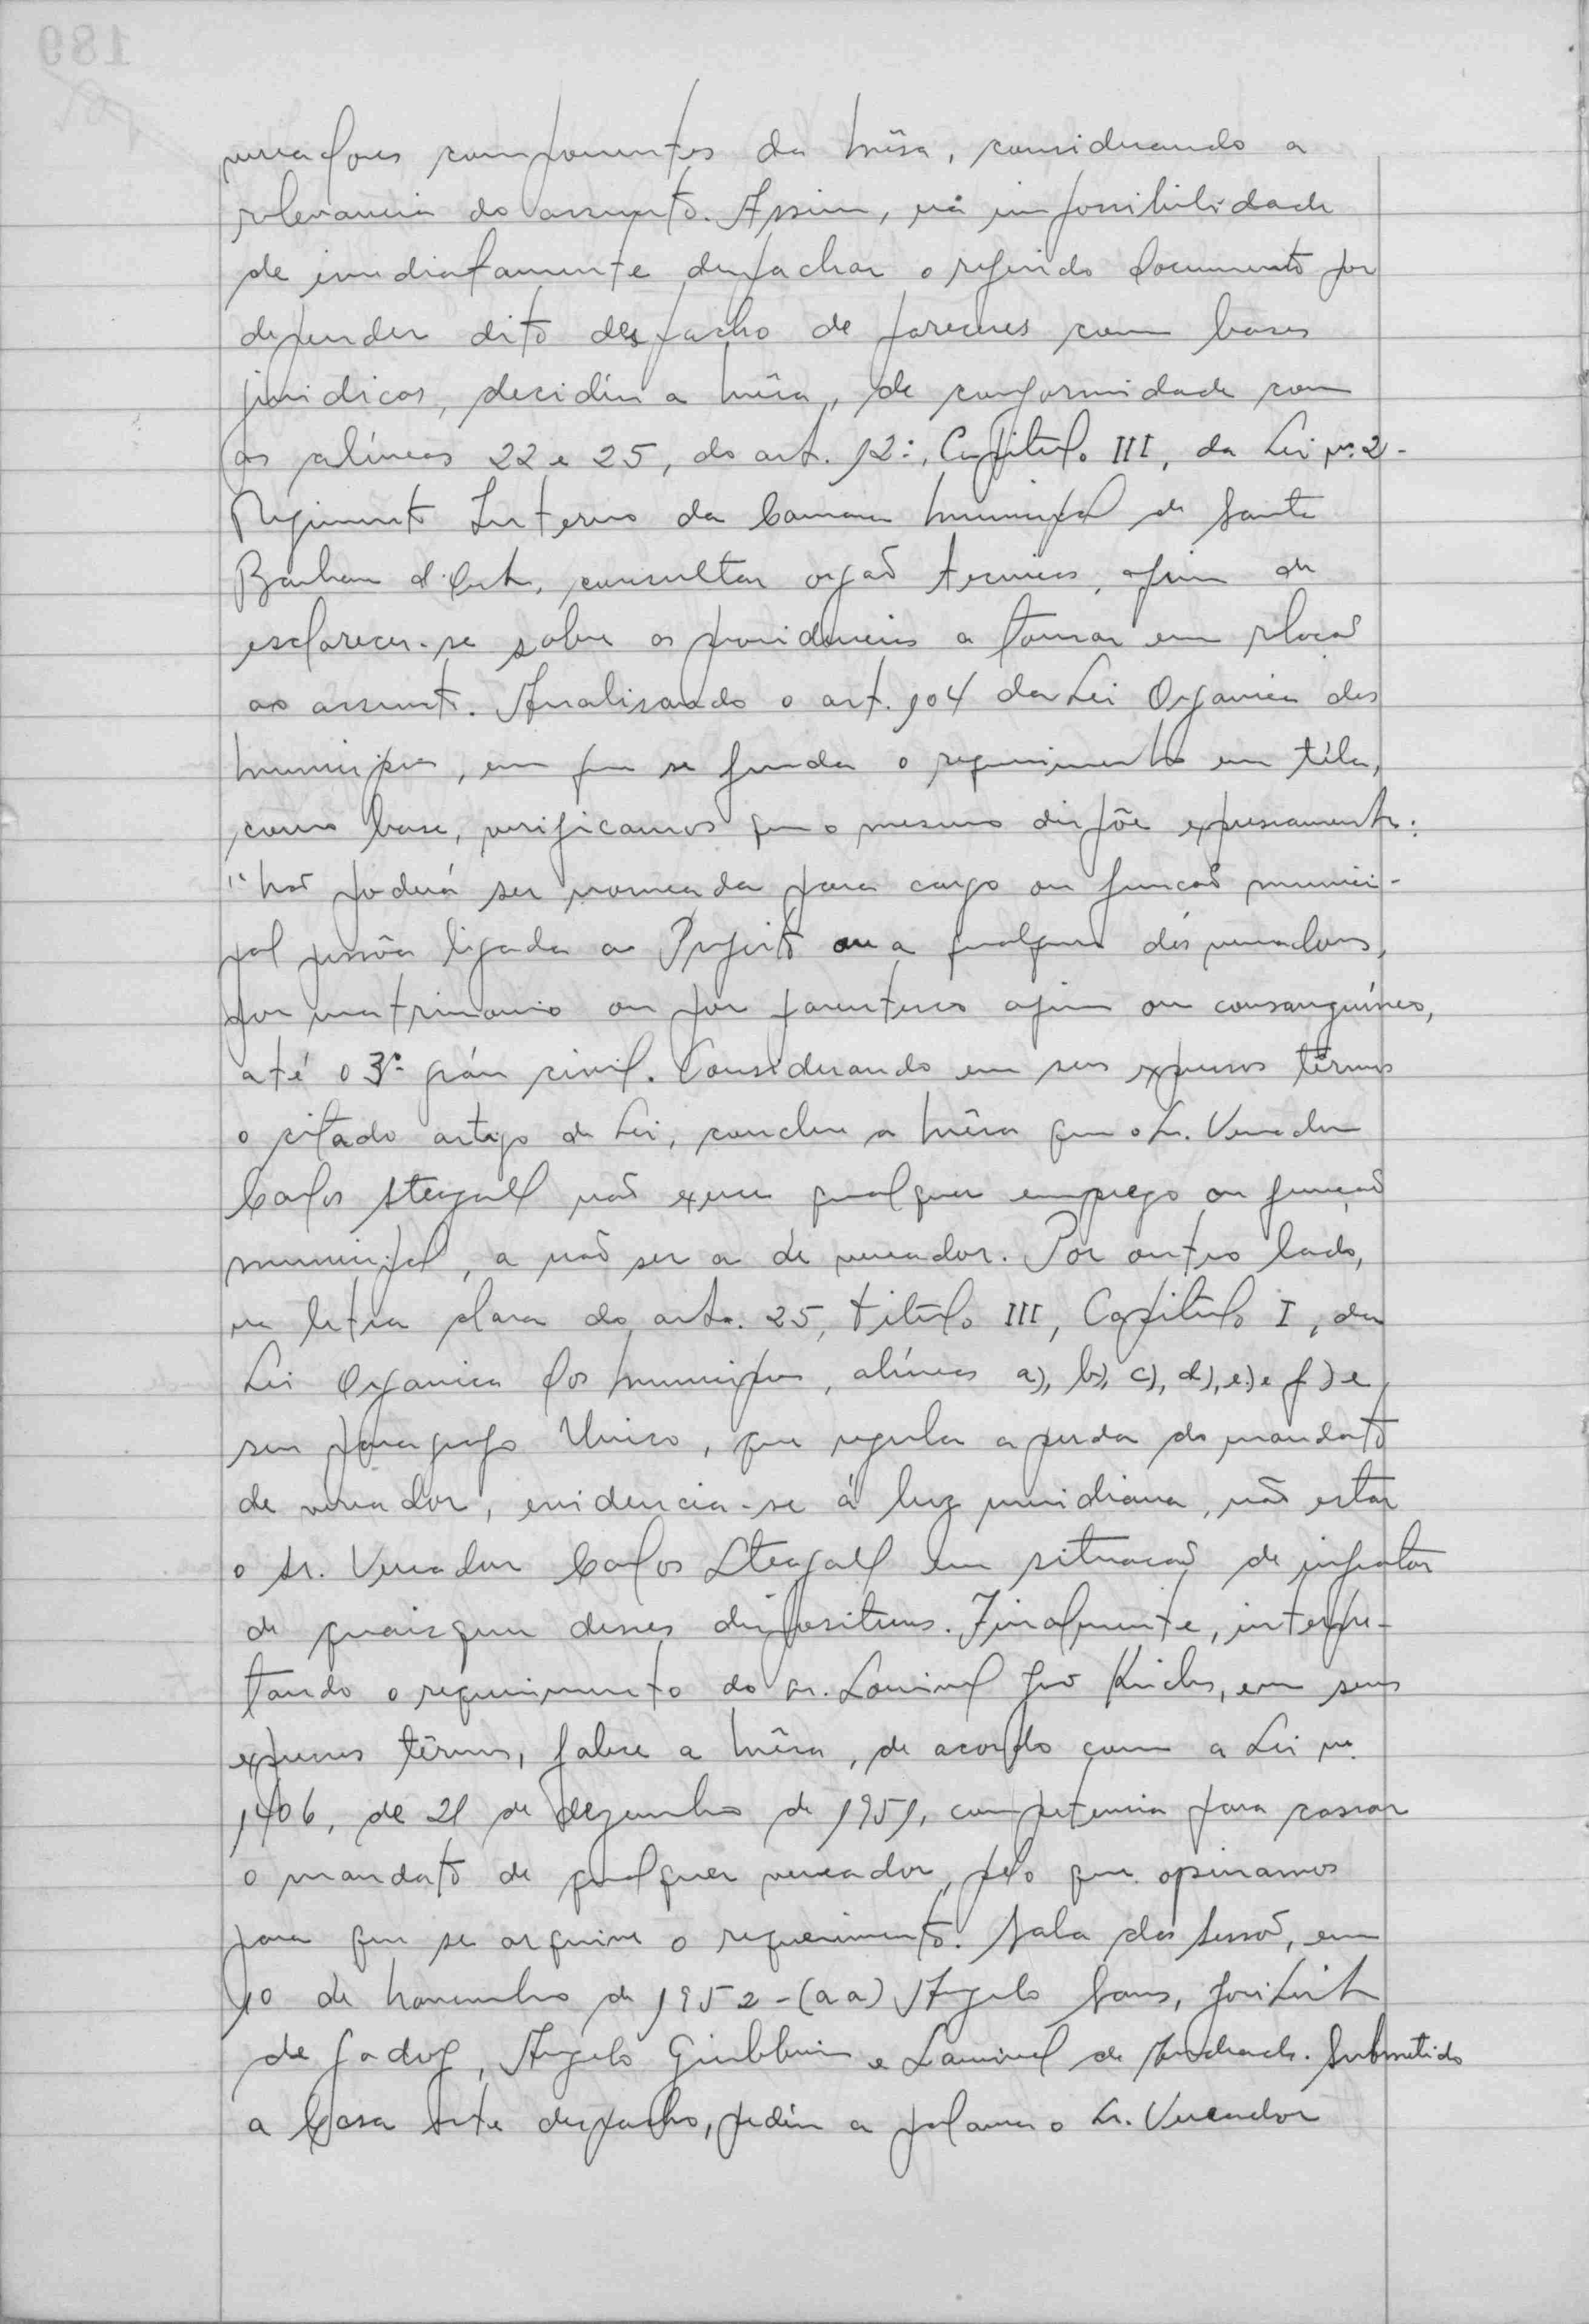 vereadores componentes da Mêsa, considerando a
relevancia do assunto. Assim, na impossibilidade
de imediatamente despachar o referido documento por
depender dito despacho de pareceres com bases
juridicas, decidiu a Mêsa, de conformidade com
as alíneas 22 e 25, do art. 12º, Capitulo III, da Lei nº 2-
Regimento Interno da Camara Municipal de Santa
Barbara d'Oeste, consultar orgão tecnico, afim de
esclarecer-se sobre as providencias a tomar em relação
ao assunto. Analisando o art. 104 da Lei Organica dos
Municipios, em que se funda o requerimento em téla,
como base, verificamos que o mesmo dispõe expressamente:
"Não poderá ser nomeada para cargo ou função munici-
pal pessôa ligada ao Prefeito ou a qualquer dos vereadores,
por matrimonio ou por parentesco afim ou consanguíneo,
até o 3º gráu civil. Considerando em seus expressos têrmos
o citado artigo da Lei, conclue a Mêsa que o Sr. Vereador
Carlos Steagall não exerce qualquer emprego ou função
municipal, a não ser a de vereador. Por outro lado,
na letra clara do art. 25, titulo III, Capitulo I, da
Lei Organica dos Municipios, alíneas a), b), c), d), e) e f) e
seu paragrafo Unico, que regula a perda do mandato
de vereador, evidencia-se á luz meridiana, não estar
o Sr. Vereador Carlos Steagall em situação de infrator
de quaisquer desses dispositivos. Finalmente, interpre-
tando o requerimento do Sr. Lourival José, em seus
expressos têrmos, falece a Mêsa, de acordo com a Lei nº
1406, de 21 de Dezembro de 1951, competencia para cassar
o mandato de qualquer vereador, pelo que opinamos
para que se arquive o requerimento. Sala das Sessões, em
10 de Novembro de 1952 - (a a) Angelo Sans, José Leite
de Godoy, Angelo Giubbina e Lourival de Andrade. Submetido
a Casa este despacho, pediu a palavra o Sr. Vereador